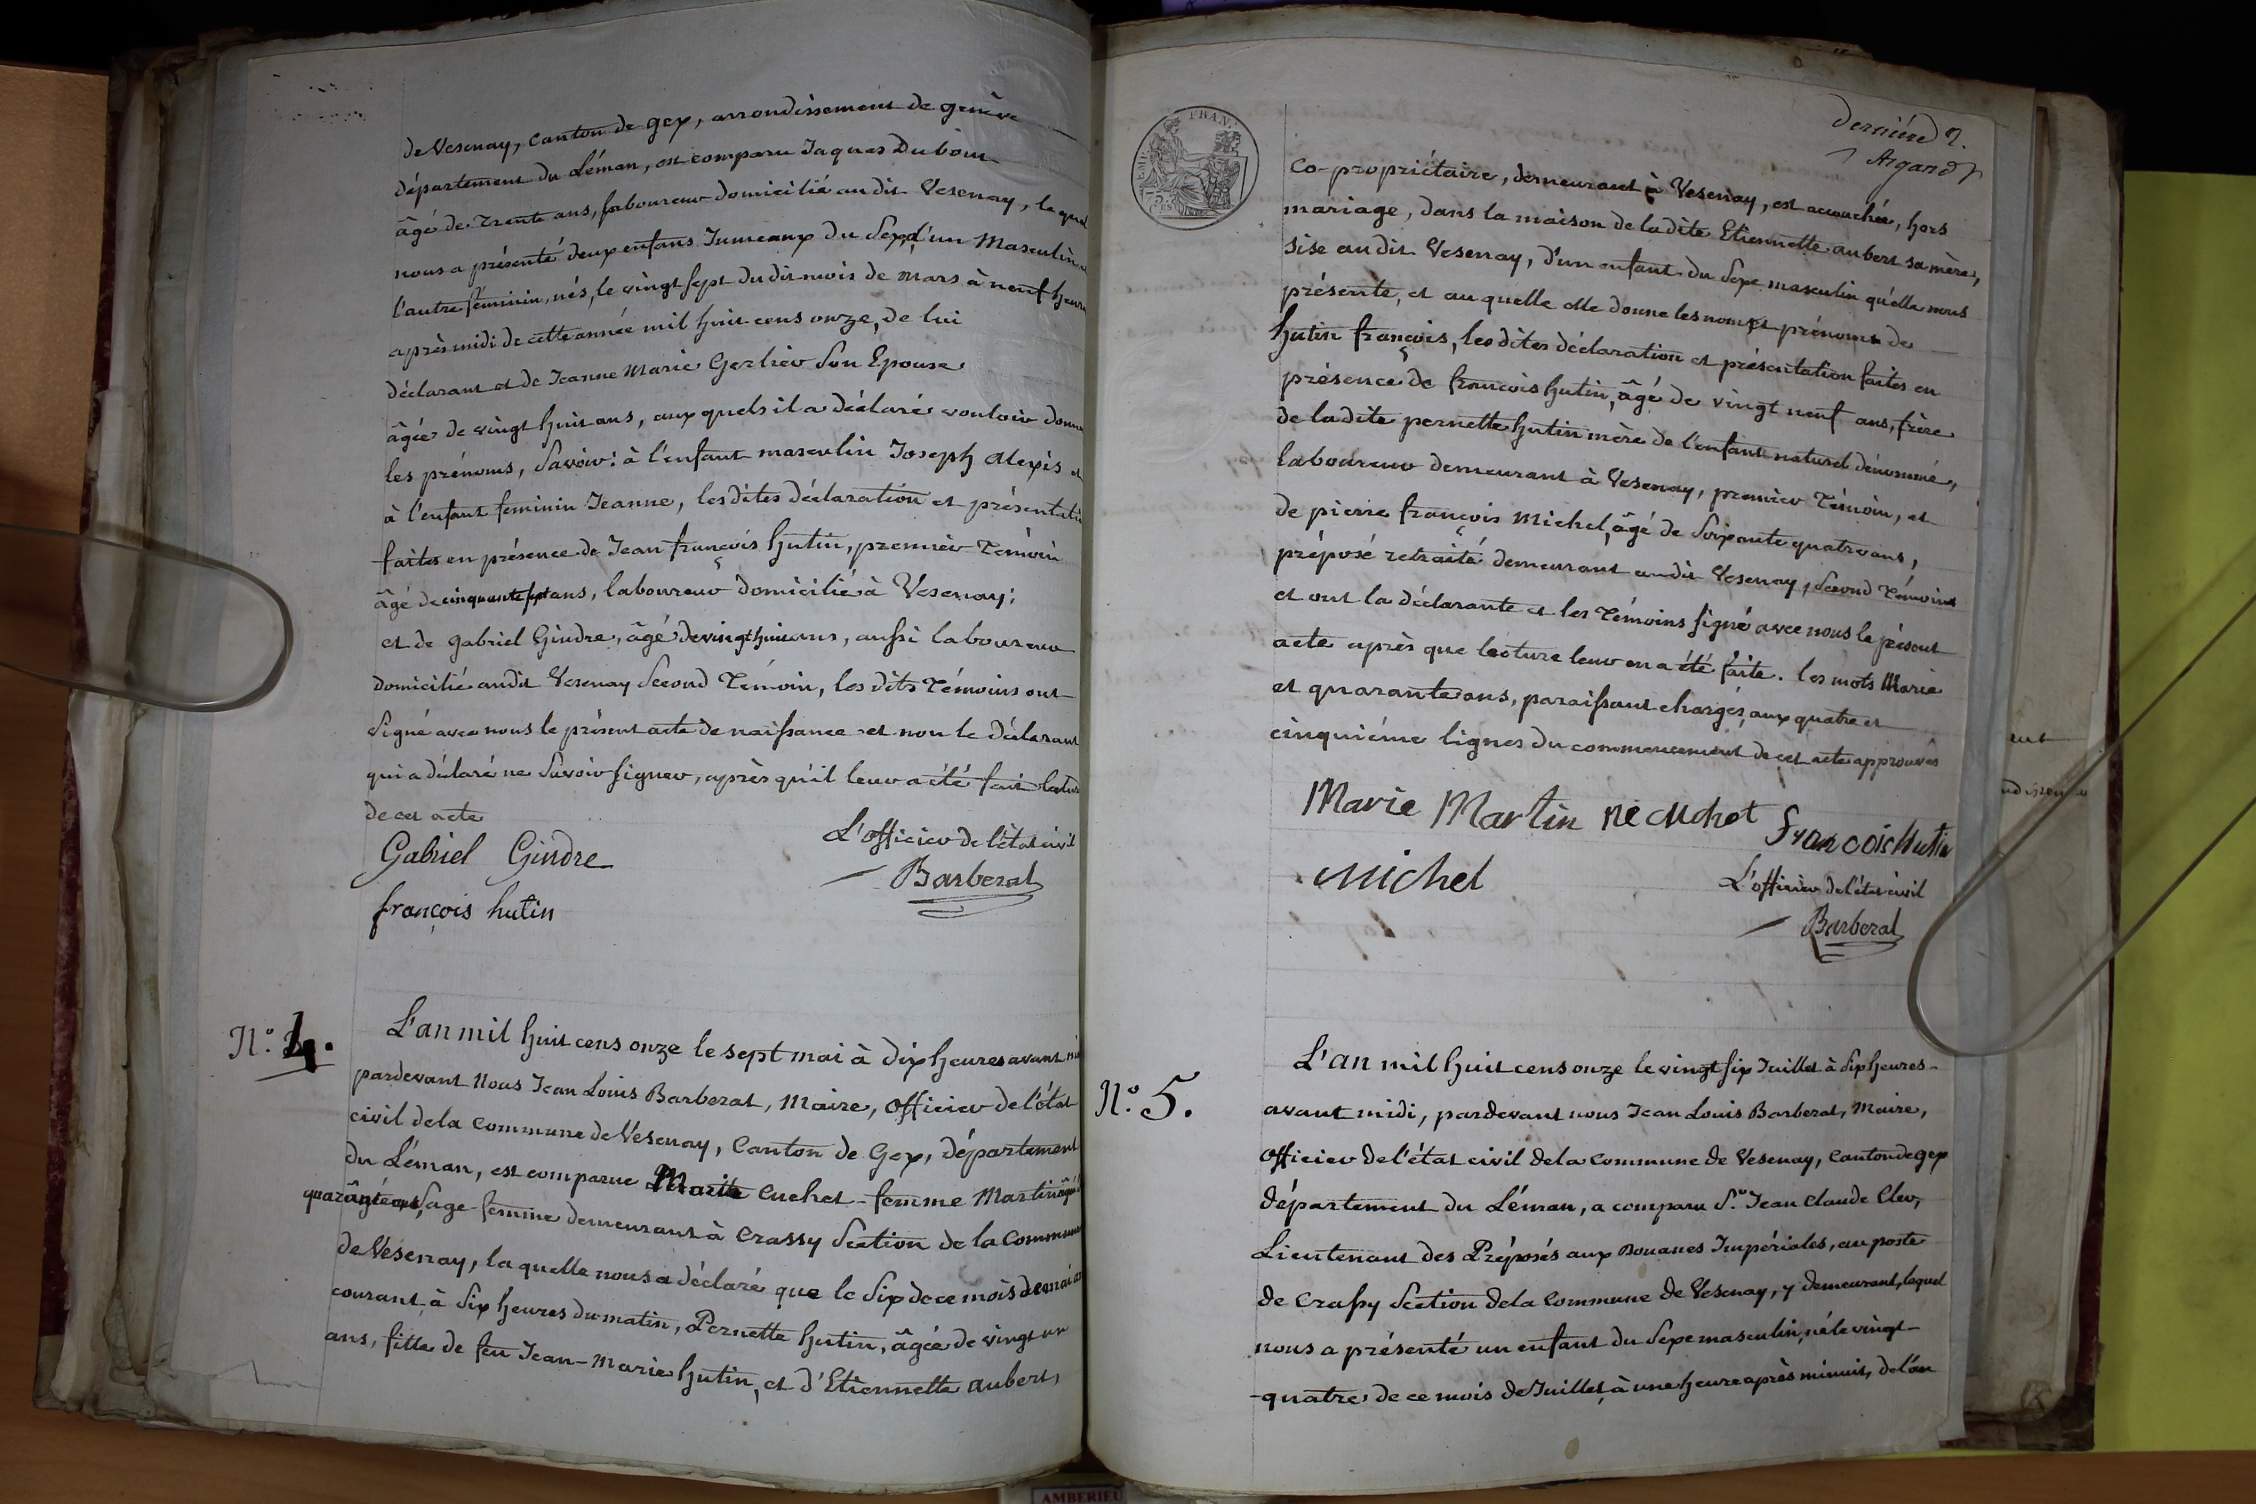 de Vesenay, canton de gex, arrondissement de genève
département du Léman, est comparu Jaques Dubois
âgé de trente ans, laboureur domicilié au dit Vesenay, lequel
nous a présenté deux enfans Jumeaux du Sexe, l'un Masculin
l'autre féminin, nés, le vingt sept du dit mois de mars à neuf heures
après midi de cette année mil huit cens onze, de lui
déclarant et de Jeanne Marie Gerlier Son Epouse
âgée de vingt huit ans, aux quels il a déclaré vouloir donner
les prénoms, Savoir: à l'enfant masculin Joseph Alexis et
à l'enfant feminin Jeanne, les dites déclaration et présentation
faites en présence de Jean françois hutin, premier Témoin
âgé de cinquante sept ans, laboureur domicilié à Vesenay;
et de Gabriel Gindre, âgé de vingt huit ans, aussi laboureur
domicilié au dit Vesenay Second Témoin, les dits Témoins ont
Signé avec nous le présent acte de naissance et non le déclarant
qui a déclaré ne Savoir Signer, après qu'il leur a été fait lecture
de cet acte
Gabriel Gindre
L'officier de l'état civil
Barberat
françois hutin
N.º 4.
L'an mil huit cens onze le sept mai à dix heures avant mi
pardevant Nous Jean Louis Barberat, Maire, officier de l'état
civil de la Commune de Vésenay, Canton de Gex, département
du Léman, est comparue Marie Cuchet femme Martin âgée de
quarante ans, Sage-femme demeurant à Crassy Section de la Commune
de Vésenay, la quelle nous a déclaré que le Six de ce mois de mai
courant, à Six heures du matin, Pernette hutin, âgée de vingt un
ans, fille de feu Jean-Marie hutin, et d'Etiennette aubert,
dernière 2.
Argand
co-propriétaire, demeurant à Vesenay, est accouchée, hors
mariage, dans la maison de la dite Etiennette aubert sa mère,
Sise au dit Vesenay, d'un enfant du Sexe masculin qu'elle nous
présente, et au quelle elle donne les nom et prénoms de
hutin françois, les dites déclaration et présentation faites en
présence de françois hutin, âgé de vingt neuf ans, frère
de la dite pernette hutin mère de l'enfant naturel dénommé,
laboureur demeurant à Vesenay, premier Témoin, et
de pierre françois Michel, âgé de Soixante quatre ans,
préposé retraité demeurant au dit Vesenay, Second Témoins
et ont la déclarante et les Témoins signé avec nous le présent
acte après que lecture leur en a été faite. les mots Marie
et quarante ans, paraissant chargés, aux quatre et
cinquième lignes du commencement de cet acte approuvés
Marie Martin né cuchet
françois Hutin
Michel
L'officier de l'état civil
Barberat
N.º 5.
L'an mil huit cens onze le vingt six Juillet à Six heures
avant midi, pardevant nous Jean Louis Barberat, Maire,
officier de l'état civil de la Commune de Vesenay, Canton de gex
département du Léman, a comparu S.r Jean Claude Clerc,
Lieutenant des Préposés aux Douanes Impériales, au poste
de Crassy Section de la Commune de Vesenay, y demeurant, lequel
nous a présenté un enfant du Sexe masculin, né le vingt-
-quatre de ce mois de Juillet, à une heure après minuit, de l'an
AMBERIEU